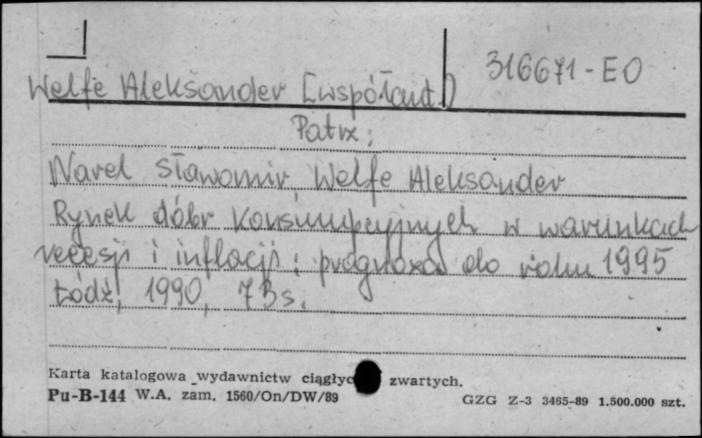 316671-EO
Welfe Aleksander [współaut.]
Patrz:
Narel Sławomir, Welfe Aleksander
Rynek dóbr konsumpcyjnych w warunkach
recesji i inflacji : prognoza do roku 1995
Łódź, 1990, 73 s.
Karta katalogowa wydawnictw ciągłyc zwartych.
Pu-B-144 W.A. zam. 1560/On/DW/89 GZG Z-3 3465-89 1.500.000 szt.